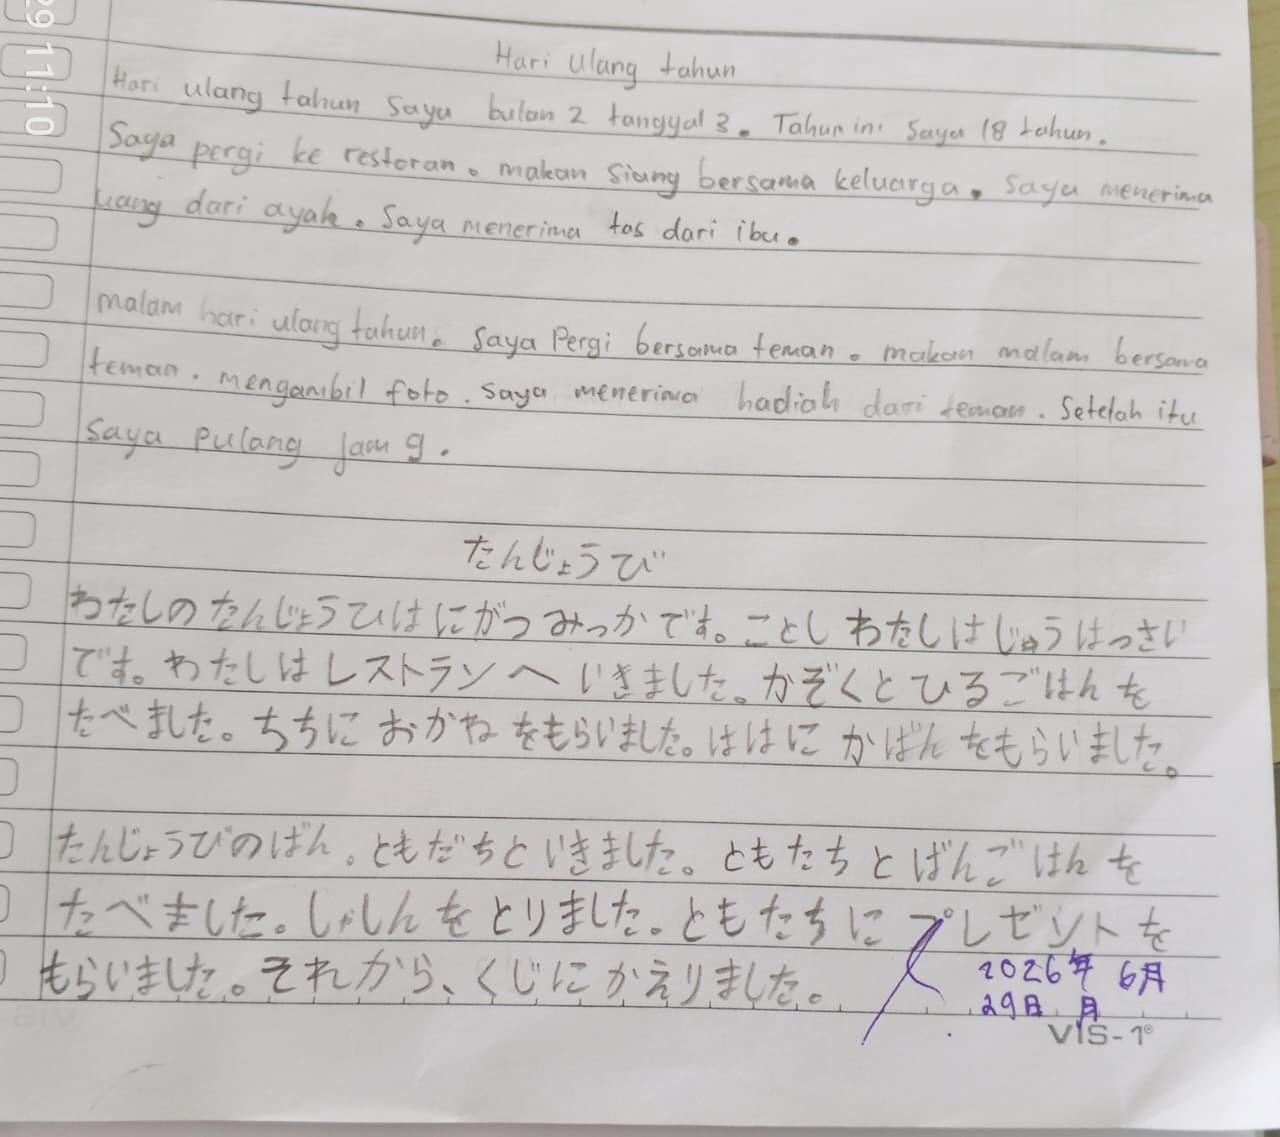 29 11:10
Hari ulang tahun
Hari ulang tahun saya bulan 2 tanggyal 3. Tahun ini saya 18 tahun.
Saya pergi ke restoran. makan siang bersama keluarga. Saya menerima
uang dari ayah. Saya menerima tas dari ibu.
malam hari ulang tahun. Saya Pergi bersama teman. makan malam bersama
teman. mengambil foto. Saya menerima hadiah dari teman. Setelah itu
Saya pulang jam 9.
たんじょうび
わたしのたんじょうひはにがつみっかです。ことしわたしはじゅうはっさい
です。わたしはレストランへいきました。かぞくとひるごはんを
たべました。ちちにおかねをもらいました。ははにかばんをもらいました。
たんじょうびのばん。ともだちといきました。ともたちとばんごはんを
たべました。しゃしんをとりました。ともたちにプレゼントを
もらいました。それから、くじにかえりました。
2026年6月
29日 月
VIS-1°